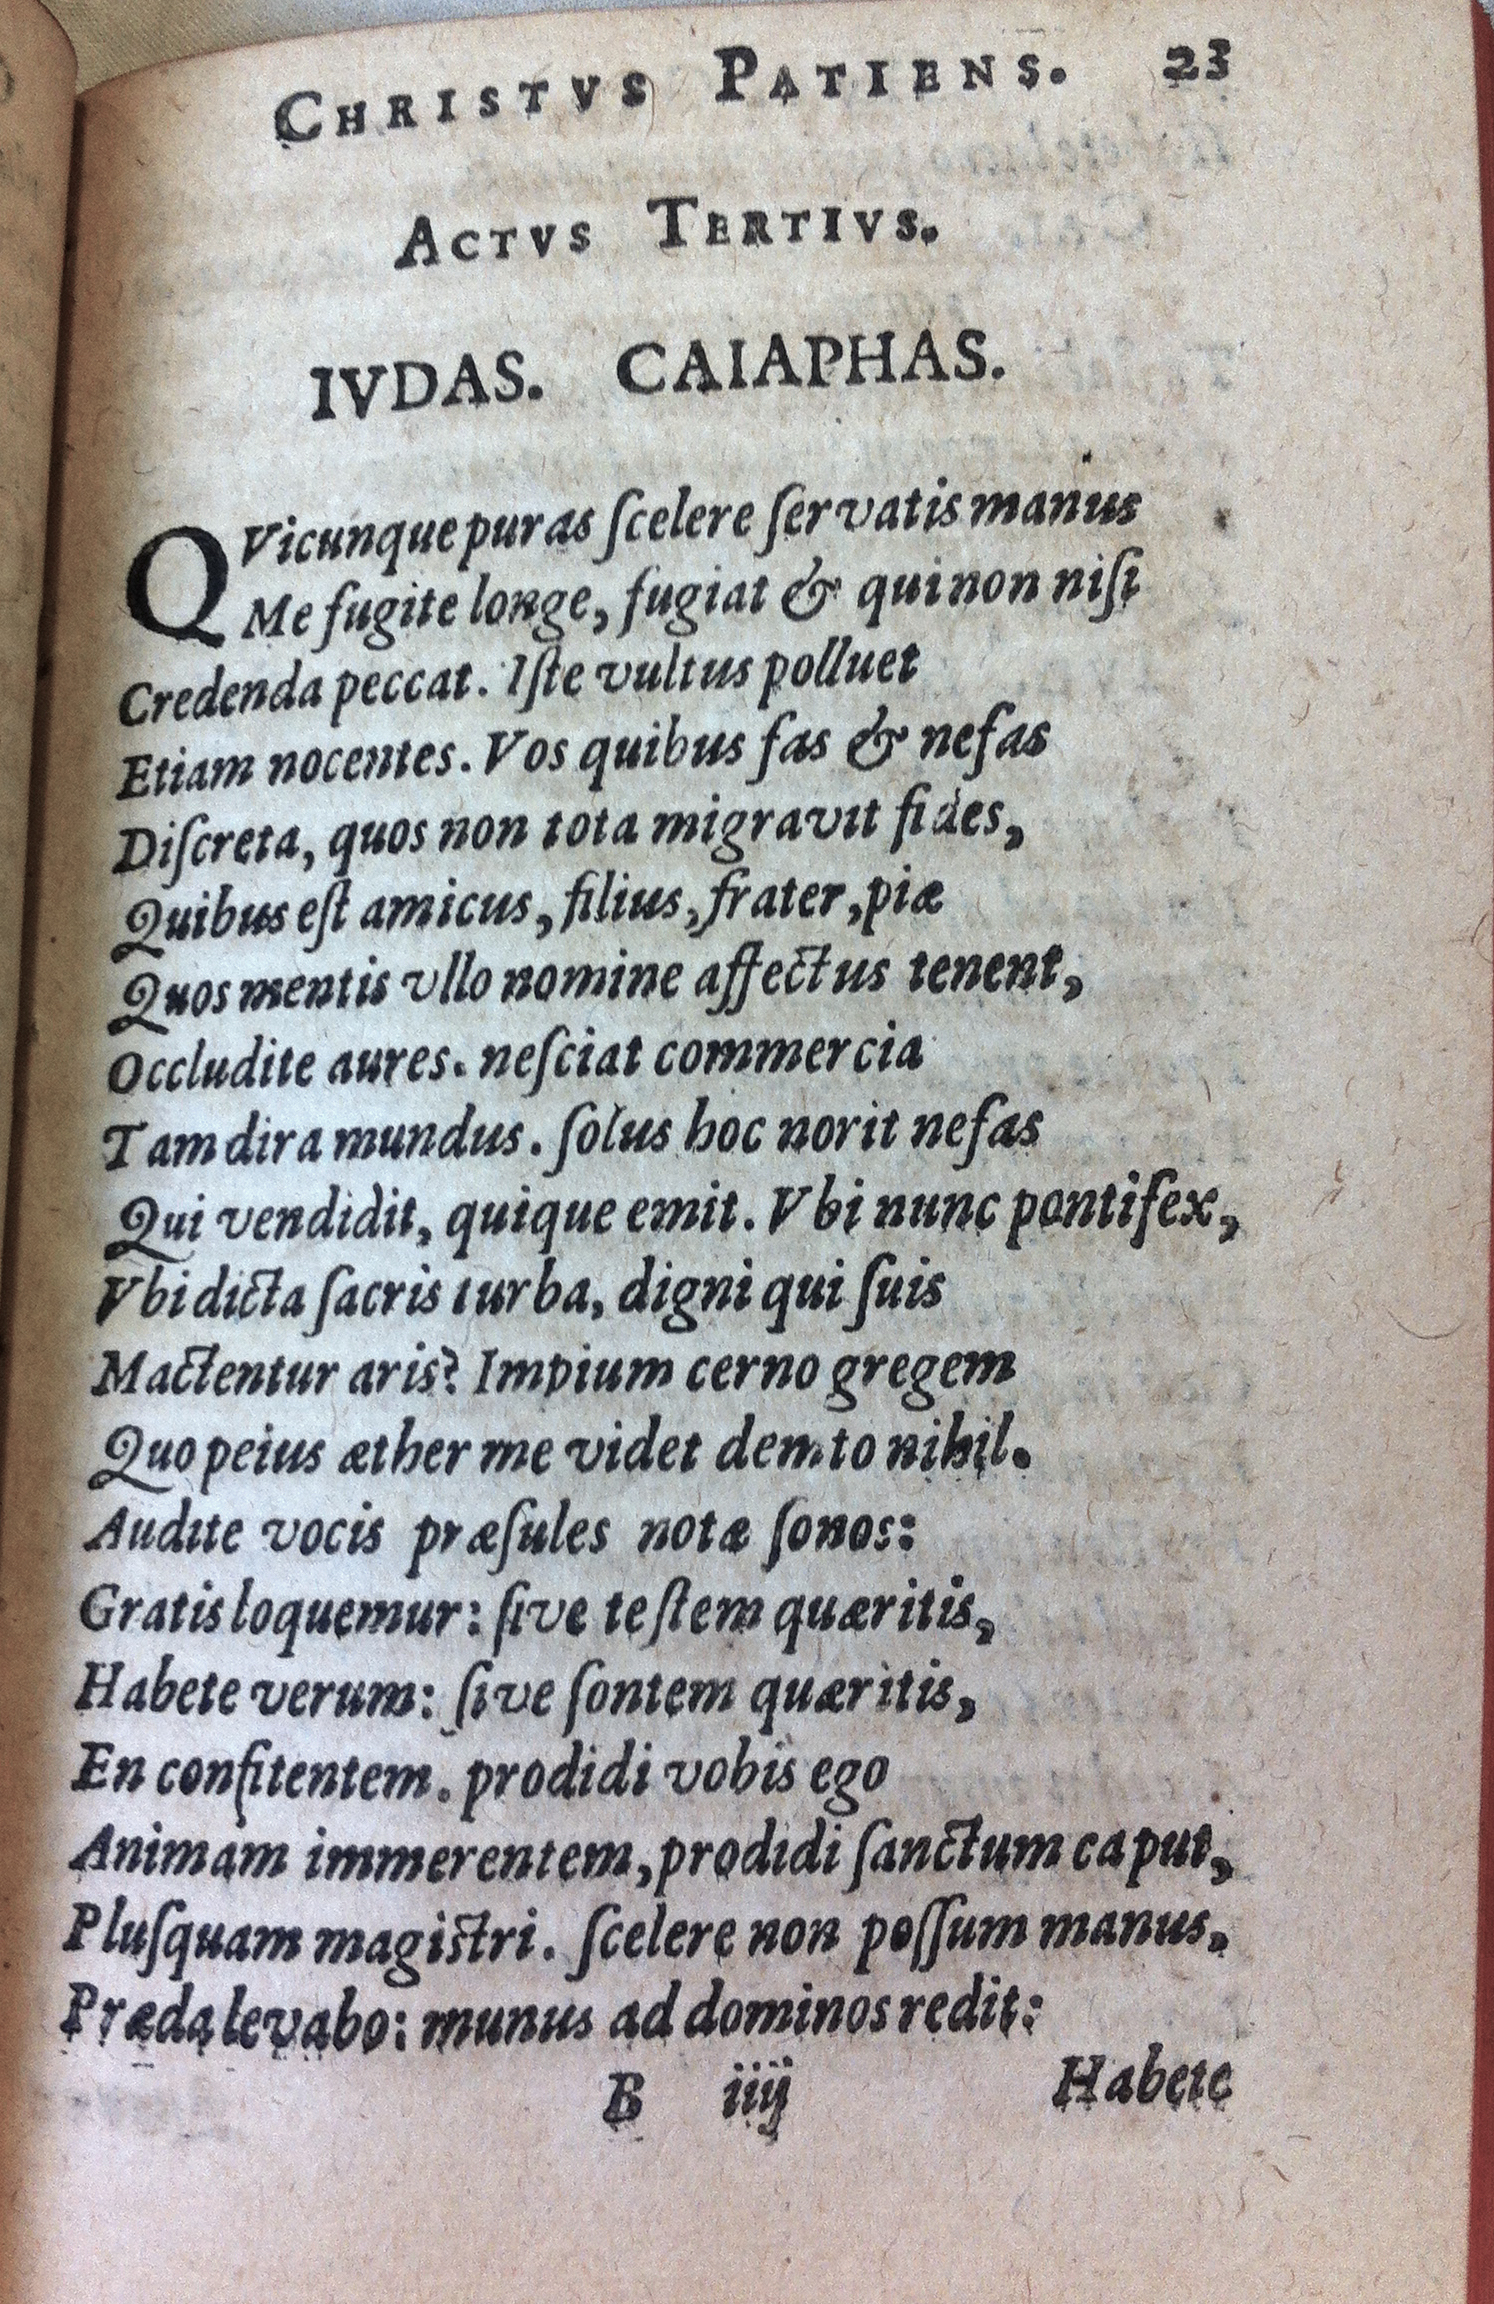 CHRISTVS PATIENS. 23
ACTVS TERTIVS.
IVDAS. CAIAPHAS.
QVicunque puras ſcelere ſervatis manus
Me fugite longe, fugiat & qui non niſi
Credenda peccat. Iſte vultus polluet
Etiam nocentes. Vos quibus fas & nefas
Diſcreta, quos non tota migravit fides,
Quibus eſt amicus, filius, frater, piæ
Quos mentis vllo nomine affectus tenent,
Occludite aures. neſciat commercia
Tam dira mundus. ſolus hoc norit nefas
Qui vendidit, quique emit. Vbi nunc pontifex,
Vbi dicta ſacris turba, digni qui ſuis
Mactentur aris? Impium cerno gregem
Quo peius æther me videt demto nihil.
Audite vocis præſules notæ ſonos:
Gratis loquemur: ſive teſtem quæritis,
Habete verum: ſive ſontem quæritis,
En confitentem. prodidi vobis ego
Animam immerentem, prodidi ſanctum caput,
Pluſquam magiſtri. ſcelere non poſſum manus,
Præda levabo: munus ad dominos redit:
B iiij Habete